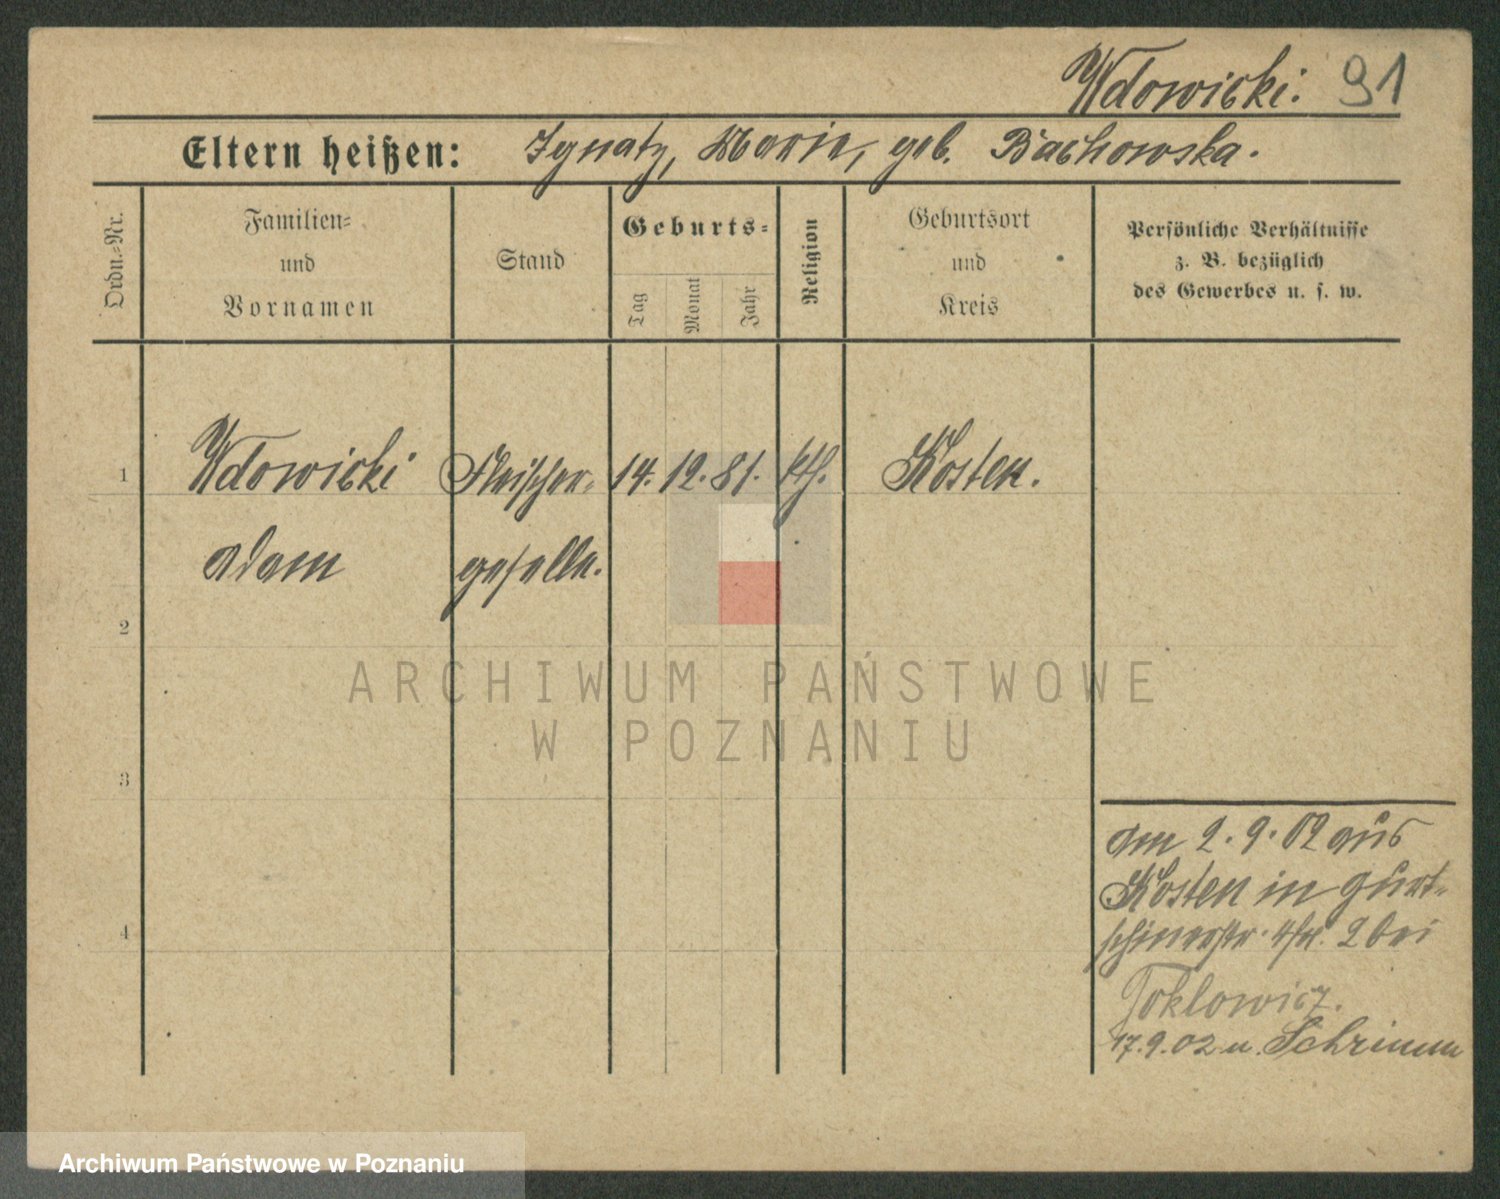 Wdowicki. 91
Eltern heißen: Ignatz, Marie, geb. Bachowska.
Ordn.-Nr.
Familien-
und
Vornamen
Stand
Geburts-
Tag
Monat
Jahr
Religion
Geburtsort
und
Kreis
Persönliche Verhältnisse
z. B. bezüglich
des Gewerbes u. s. w.
1 Wdowicki Fleischer- 14. 12. 81. kth. Kosten.
Adam geselle.
2
3
4
am 2. 9. 02 aus
Kosten in Gurt-
schinerstr. 2 bei
Toklowicz.
17.9.02 n. Schrimm
ARCHIWUM PAŃSTWOWE
W POZNANIU
Archiwum Państwowe w Poznaniu